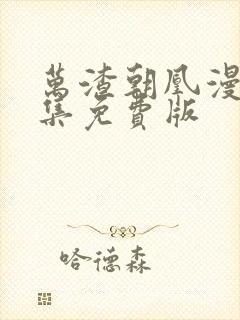 萬渣朝凰漫
集免費版
哈德森